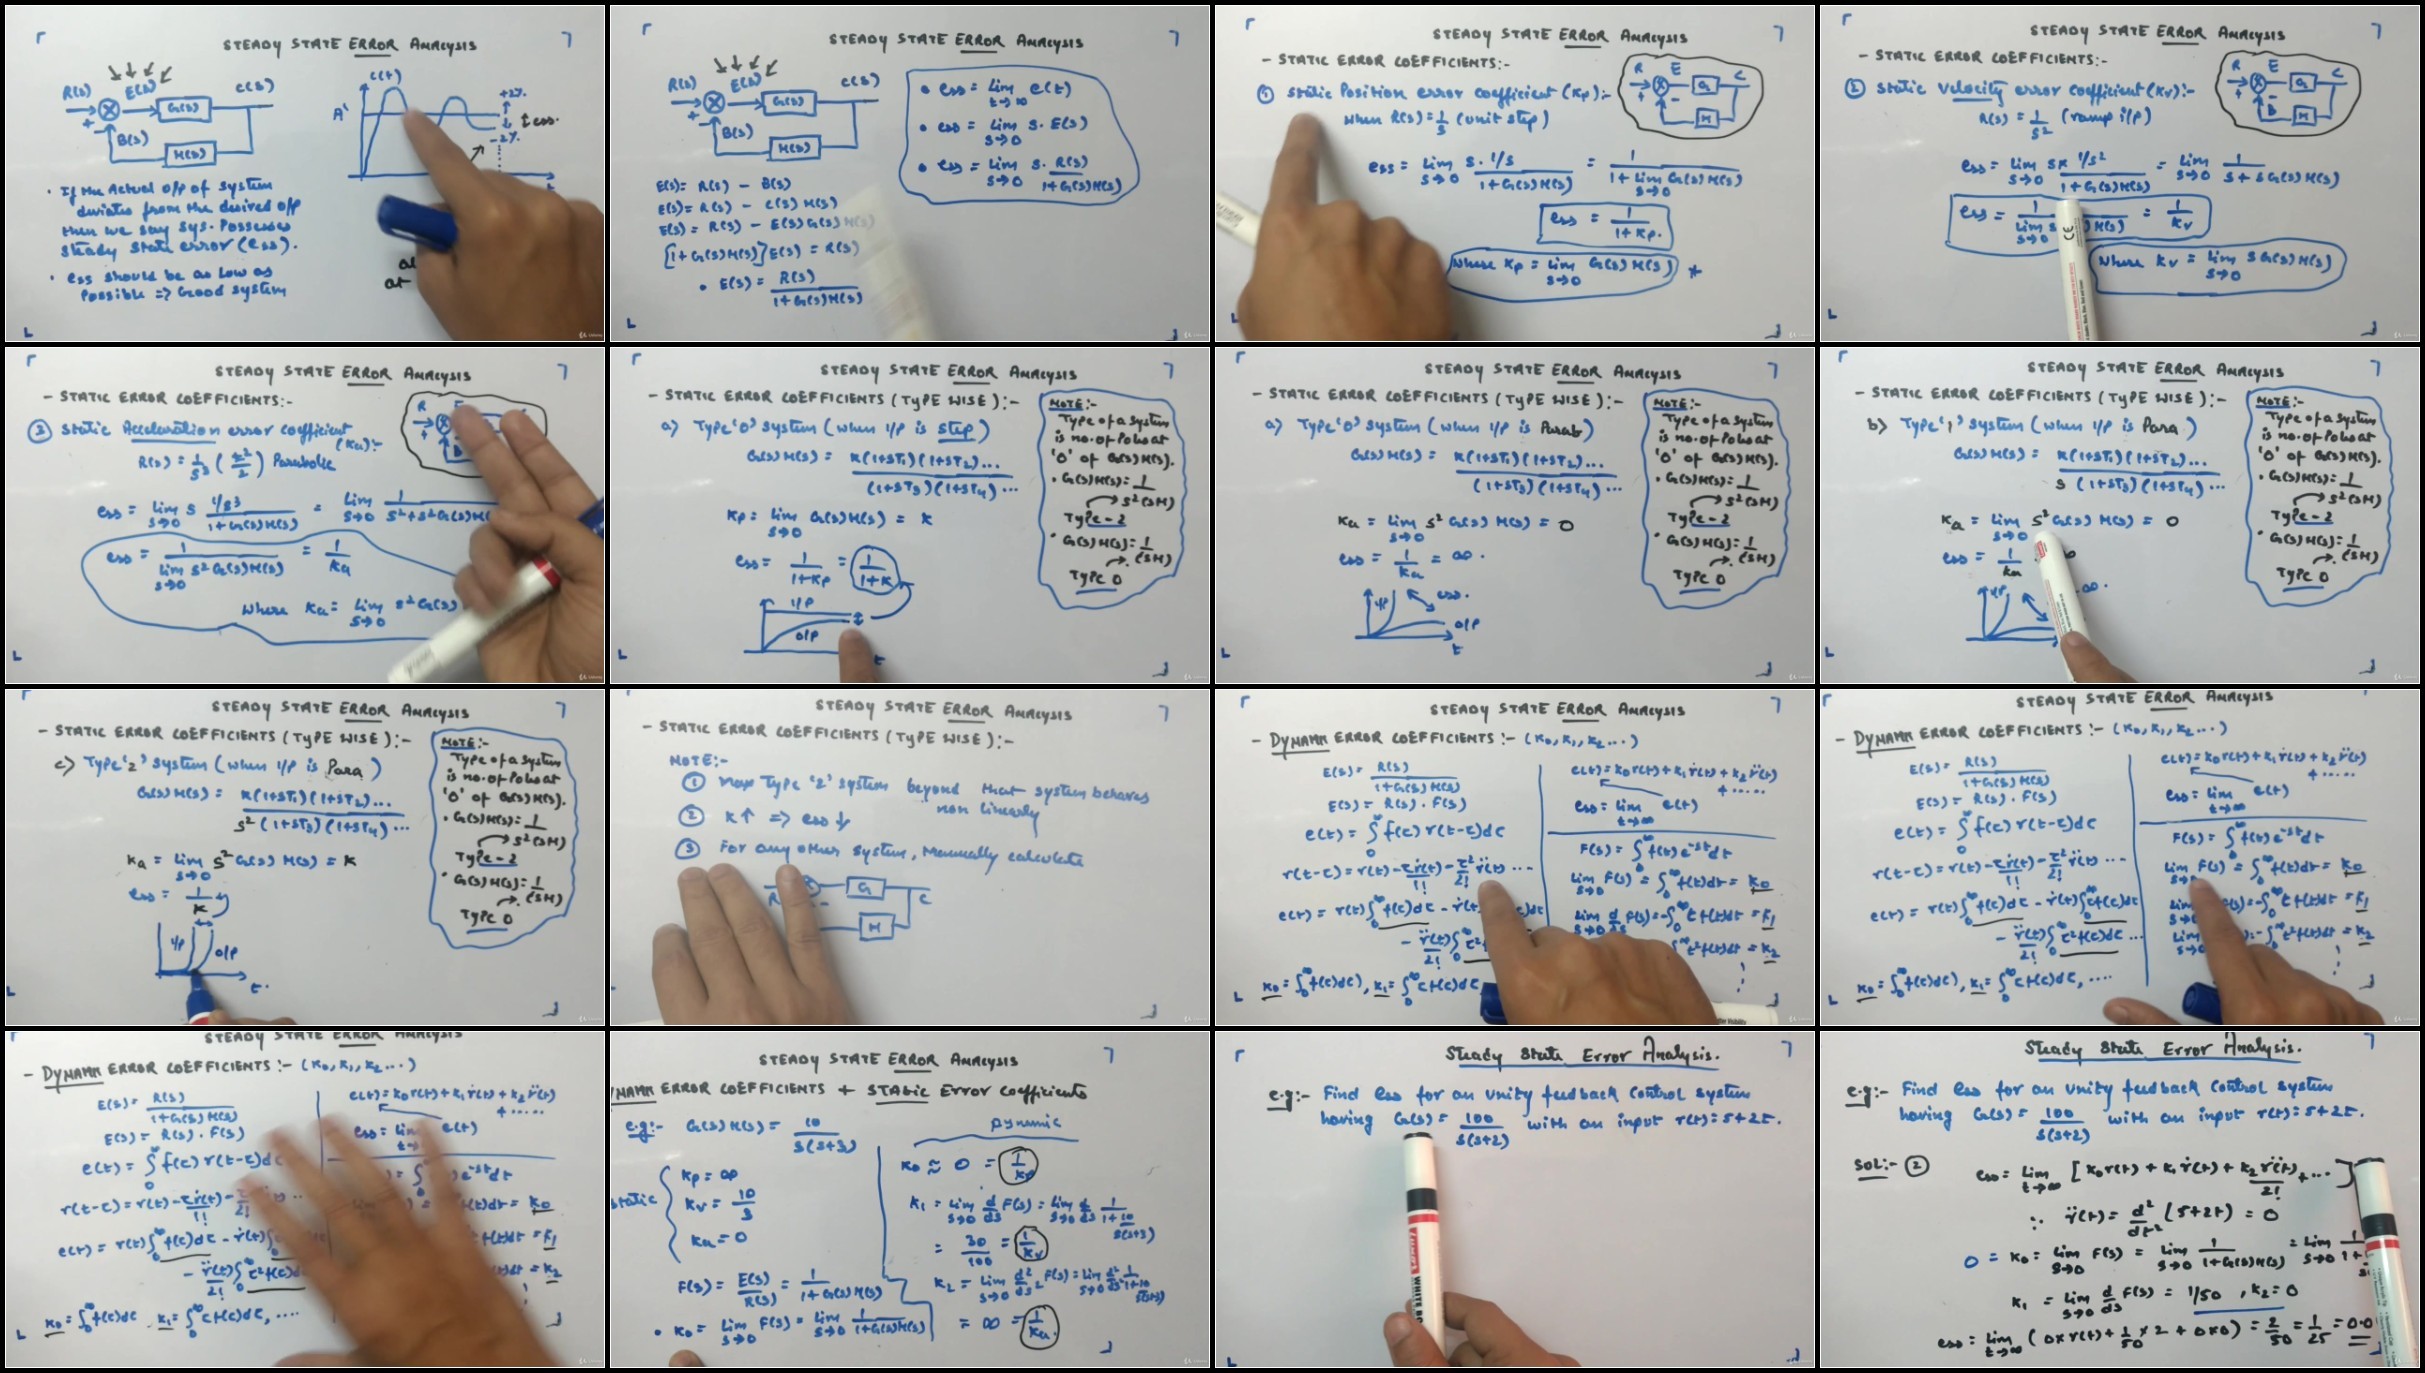 STEADY STATE ERROR ANALYSIS
R(S)
E(S)
G(S)
C(S)
B(S)
H(S)
C(t)
A
+2%
ess.
-2%
• If the Actual o/p of system
deviates from the desired o/p
then we say sys. Possesses
steady state error (ess).
• ess should be as low as
Possible => Good system
STEADY STATE ERROR ANALYSIS
R(S)
E(S)
G(S)
C(S)
B(S)
H(S)
• ess = lim t→∞ e(t)
• ess = lim s→0 S. E(S)
• ess = lim s→0 S. R(S) / 1+G(S)H(S)
E(S) = R(S) - B(S)
E(S) = R(S) - C(S) H(S)
E(S) = R(S) - E(S)G(S) H(S)
[1+G(S)H(S)] E(S) = R(S)
• E(S) = R(S) / 1+G(S)H(S)
STEADY STATE ERROR ANALYSIS
- STATIC ERROR COEFFICIENTS:-
① Static Position error coefficient (Kp):-
When R(S) = 1/S (unit step)
R E G C
H
ess = lim s→0 S. 1/S / 1+G(S)H(S) = 1 / 1+ lim s→0 G(S)H(S)
ess = 1 / 1+Kp.
Where Kp = lim s→0 G(S) H(S) *
STEADY STATE ERROR ANALYSIS
- STATIC ERROR COEFFICIENTS:-
② Static Velocity error coefficient (Kv):-
R(S) = 1/S² (ramp i/p)
R E G C
B H
ess = lim s→0 S× 1/S² / 1+G(S)H(S) = lim s→0 1 / S+SG(S)H(S)
ess = 1 / lim s→0 S H(S) = 1/Kv
Where Kv = lim s→0 SG(S)H(S)
STEADY STATE ERROR ANALYSIS
- STATIC ERROR COEFFICIENTS:-
③ Static Acceleration error coefficient (Ka):-
R(S) = 1/S³ (t²/2) Parabolic
ess = lim s→0 S 1/S³ / 1+G(S)H(S) = lim s→0 1 / S²+S²G(S)H(S)
ess = 1 / lim s→0 S²G(S)H(S) = 1/Ka
Where Ka = lim s→0 S²G(S)
STEADY STATE ERROR ANALYSIS
- STATIC ERROR COEFFICIENTS (TYPE WISE):-
a) Type '0' system (when i/p is step)
G(S)H(S) = K(1+ST1)(1+ST2)... / (1+ST3)(1+ST4)...
Kp = lim s→0 G(S)H(S) = K
ess = 1/1+Kp = 1/1+K
I/P
O/P
t
NOTE:-
Type of a system
is no. of Poles at
'0' of G(S)H(S).
• G(S)H(S) = 1 / S²(S+1)
Type-2
• G(S)H(S) = 1 / (S+1)
Type 0
STEADY STATE ERROR ANALYSIS
- STATIC ERROR COEFFICIENTS (TYPE WISE):-
a) Type '0' system (when i/p is Parab)
G(S)H(S) = K(1+ST1)(1+ST2)... / (1+ST3)(1+ST4)...
Ka = lim s→0 S² G(S) H(S) = 0
ess = 1/Ka = ∞.
I/P
ess.
O/P
t
NOTE:-
Type of a system
is no. of Poles at
'0' of G(S)H(S).
• G(S)H(S) = 1 / S²(S+1)
Type-2
• G(S)H(S) = 1 / (S+1)
Type 0
STEADY STATE ERROR ANALYSIS
- STATIC ERROR COEFFICIENTS (TYPE WISE):-
b) Type '1' system (when i/p is Para )
G(S)H(S) = K(1+ST1)(1+ST2)... / S(1+ST3)(1+ST4)...
Ka = lim s→0 S² G(S) H(S) = 0
ess = 1/Ka
I/P
∞.
NOTE:-
Type of a system
is no. of Poles at
'0' of G(S)H(S).
• G(S)H(S) = 1 / S²(S+1)
Type-2
• G(S)H(S) = 1 / (S+1)
Type 0
STEADY STATE ERROR ANALYSIS
- STATIC ERROR COEFFICIENTS (TYPE WISE):-
c) Type '2' system (when i/p is Para )
G(S)H(S) = K(1+ST1)(1+ST2)... / S²(1+ST3)(1+ST4)...
Ka = lim s→0 S² G(S) H(S) = K
ess = 1/K
I/P
O/P
t.
NOTE:-
Type of a system
is no. of Poles at
'0' of G(S)H(S).
• G(S)H(S) = 1 / S²(S+1)
Type-2
• G(S)H(S) = 1 / (S+1)
Type 0
STEADY STATE ERROR ANALYSIS
- STATIC ERROR COEFFICIENTS (TYPE WISE):-
NOTE:-
① max Type '2' system beyond that system behaves
non linearly
② K↑ => ess↓
③ For any other system, Manually calculate
R G C
H
STEADY STATE ERROR ANALYSIS
- DYNAMIC ERROR COEFFICIENTS:- (K0, K1, K2...)
E(S) = R(S) / 1+G(S)H(S)
E(S) = R(S). F(S)
e(t) = ∫0^∞ f(τ) r(t-τ)dτ
r(t-τ) = r(t) - τṙ(t)/1! - τ²/2! r̈(t)...
e(t) = r(t)∫0^∞ f(τ)dτ - ṙ(t)
- r̈(t)/2! ∫0^∞ τ²
K0 = ∫0^∞ f(τ)dτ, K1 = ∫0^∞ τf(τ)dτ
e(t) = K0r(t) + K1ṙ(t) + K2r̈(t) + .....
ess = lim t→∞ e(t)
F(S) = ∫0^∞ f(t) e^-st dt
lim s→0 F(S) = ∫0^∞ f(t)dt = K0
lim s→0 d/ds F(S) = -∫0^∞ t f(t)dt = K1
∫0^∞ t²f(t)dt = K2
STEADY STATE ERROR ANALYSIS
- DYNAMIC ERROR COEFFICIENTS:- (K0, K1, K2...)
E(S) = R(S) / 1+G(S)H(S)
E(S) = R(S). F(S)
e(t) = ∫0^∞ f(τ) r(t-τ)dτ
r(t-τ) = r(t) - τṙ(t)/1! - τ²/2! r̈(t)...
e(t) = r(t)∫0^∞ f(τ)dτ - ṙ(t)∫0^∞ τf(τ)dτ
- r̈(t)/2! ∫0^∞ τ²f(τ)dτ...
K0 = ∫0^∞ f(τ)dτ, K1 = ∫0^∞ τf(τ)dτ, ....
e(t) = K0r(t) + K1ṙ(t) + K2r̈(t) + .....
ess = lim t→∞ e(t)
F(S) = ∫0^∞ f(t) e^-st dt
lim F(S) = ∫0^∞ f(t)dt = K0
lim = -∫0^∞ t f(t)dt = K1
lim = -∫0^∞ t²f(t)dt = K2
STEADY STATE ERROR ANALYSIS
- DYNAMIC ERROR COEFFICIENTS:- (K0, K1, K2...)
E(S) = R(S) / 1+G(S)H(S)
E(S) = R(S). F(S)
e(t) = ∫0^∞ f(τ) r(t-τ)d
r(t-τ) = r(t) - τṙ(t)/1! -
e(t) = r(t)∫0^∞ f(τ)dτ - ṙ(t)
- r̈(t)/2! ∫0^∞ τ²f(τ)d
K0 = ∫0^∞ f(τ)dτ, K1 = ∫0^∞ τf(τ)dτ, ....
e(t) = K0r(t) + K1ṙ(t) + K2r̈(t) + .....
ess = lim e(t)
STEADY STATE ERROR ANALYSIS
NAMIC ERROR COEFFICIENTS + STATIC Error Coefficients
e.g:- G(S)H(S) = 10 / S(S+3)
Static
Kp = ∞
Kv = 10/3
Ka = 0
F(S) = E(S)/R(S) = 1 / 1+G(S)H(S)
• K0 = lim s→0 F(S) = lim s→0 1 / 1+G(S)H(S)
Dynamic
K0 ≈ 0 = 1/Kp
K1 = lim s→0 d/ds F(S) = lim s→0 d/ds 1 / 1+ 10/S(S+3)
= 30/100 = 1/Kv
K2 = lim s→0 d²/ds² F(S) = lim s→0 d²/ds² 1 / 1+ 10/S(S+3)
= ∞ = 1/Ka.
Steady State Error Analysis.
e.g:- Find ess for an unity feedback control system
having G(S) = 100 / S(S+2) with an input r(t) = 5+2t.
Steady State Error Analysis.
e.g:- Find ess for an unity feedback control system
having G(S) = 100 / S(S+2) with an input r(t) = 5+2t.
SOL:- ② ess = lim t→∞ [K0r(t) + K1ṙ(t) + K2r̈(t)/2! + ...]
∵ r̈(t) = d²/dt² (5+2t) = 0
0 = K0 = lim s→0 F(S) = lim s→0 1 / 1+G(S)H(S) = lim s→0 1 / 1+
K1 = lim s→0 d/ds F(S) = 1/50, K2 = 0
ess = lim t→∞ (0×r(t) + 1/50 × 2 + 0×0) = 2/50 = 1/25 = 0.0